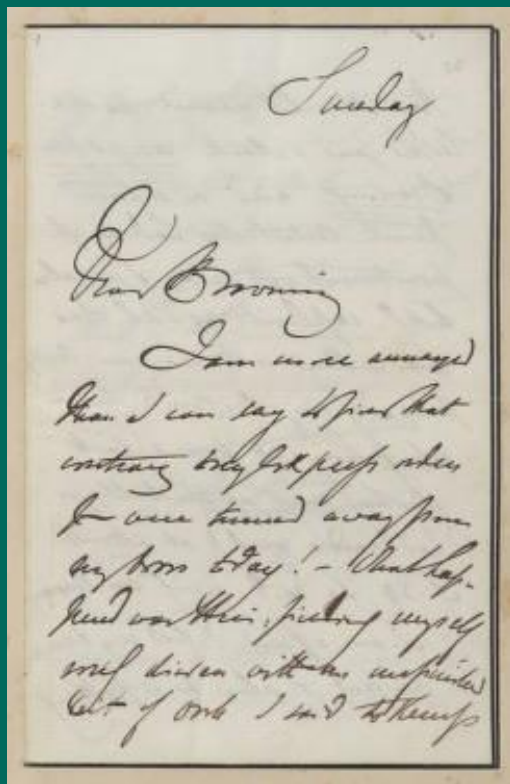 Sunday
Dear Browning
I am more annoyed
than I can say to find that
contrary to my express orders
you were turned away from
my door today! – What hap-
pened was this, finding myself
and with an unfinished
of work I said to Kemp